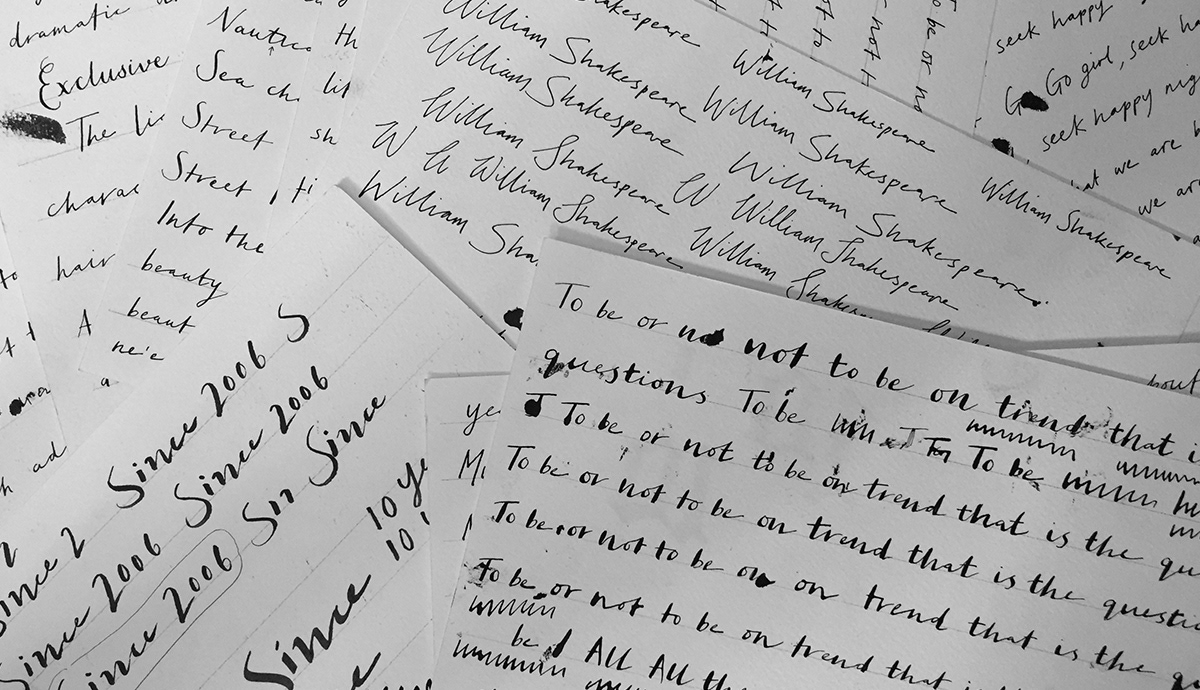 dramatic
Exclusive
The
hair
A
ad
Nautic
Sea
Street
Street
Into the
beauty
beaut
th
lit
sh
William Shakespeare
William Shakespeare
William Shakespeare
W W William Shakespeare
William Sha
William Shakespeare
William Shakespeare
William Shakespeare
W William Shakespeare
William Shakespeare
William Shakespeare
to be or no
not t
seek happy
G Go girl, seek ha
seek happy nig
at we are b
we are
Since 2006 S
Since 2006
Since 2 Sin Since
Since 2006
Since 2006
10 ye
10
Since
ye
To be or no not to be on trend that is
questions To be T To To be
T To be or not to be on trend that is the qu
To be or not to be on trend that is the questio
To be or not to be on on trend that is the
To be or not to be on trend that is
be All All th